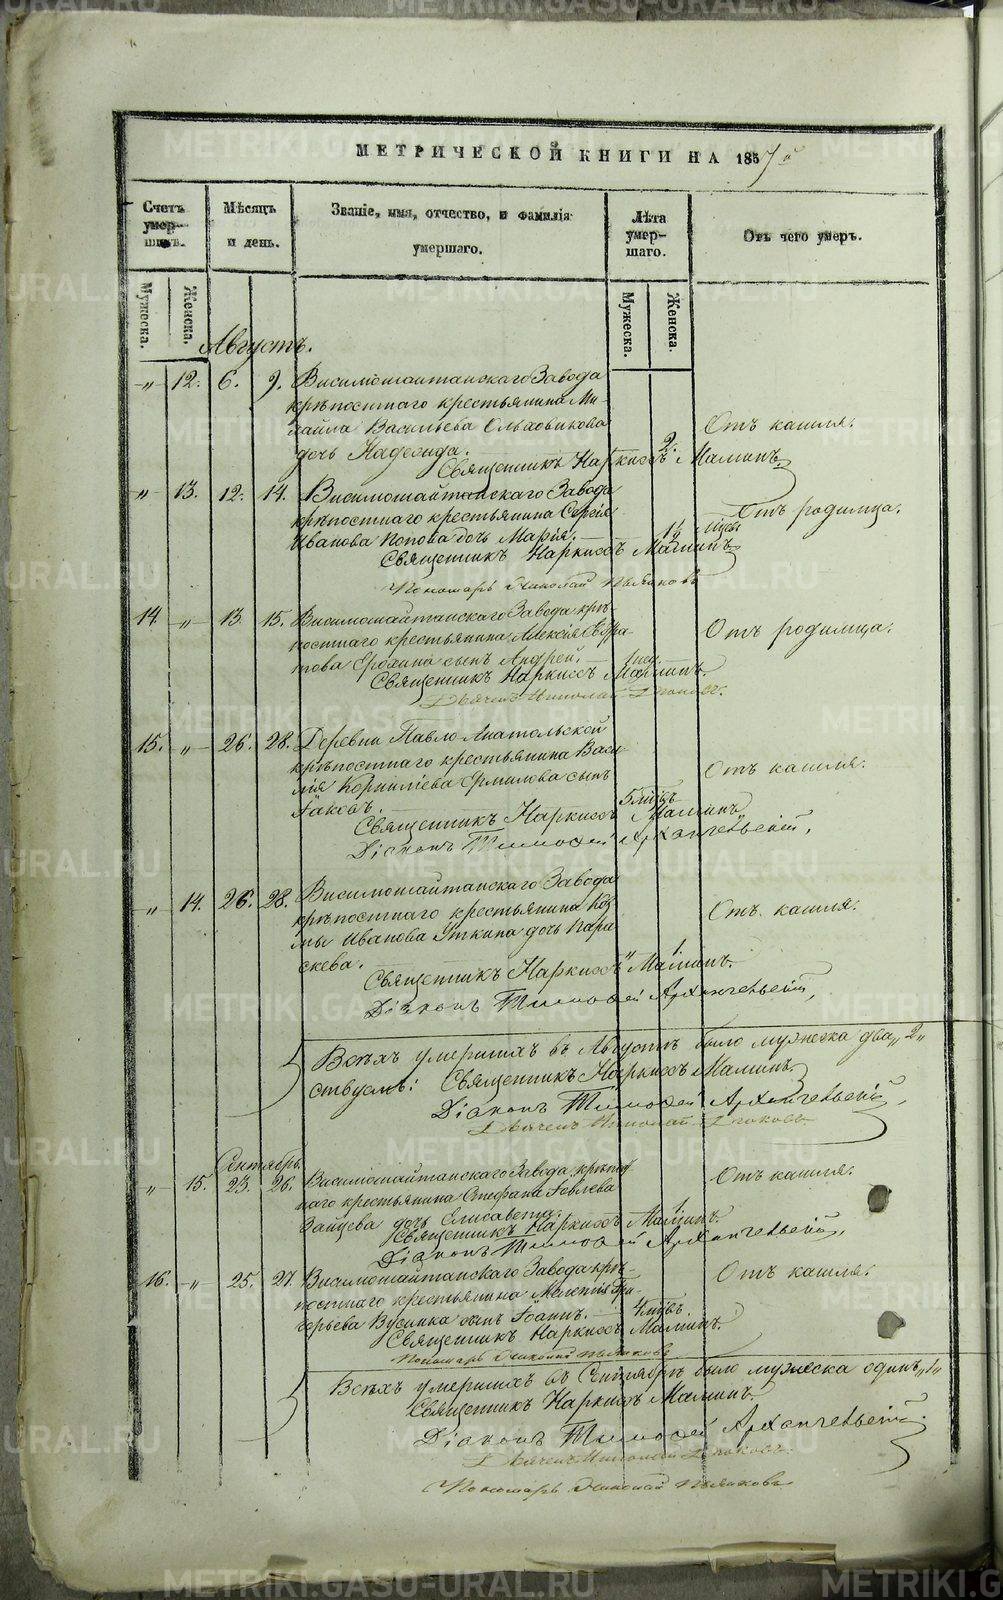 МЕТРИЧЕСКОЙ КНИГИ НА 1857й
Счетъ умершихъ.
Мѣсяцъ и день.
Званіе, имя, отчество, и фамилія умершаго.
Лѣта умершаго.
Отъ чего умеръ.
Мужеска.
Женска.
Мужеска.
Женска.
Августъ.
„ 12. 6. 9. Висимошайтанскаго Завода
крѣпостнаго крестьянина Ми-
хайла Васильева Ольховикова
дочь Надежда. 2. Отъ кашля.
Священникъ Наркиссъ Маминъ.
„ 13. 12. 14. Висимошайтанскаго Завода
крѣпостнаго крестьянина Сергія
Иванова Попова дочь Марія. 1½ мцы Отъ родимца.
Священникъ Наркиссъ Маминъ
Пономарь Николай
14 „ 13 15. Висимошайтанскаго Завода крѣ-
постнаго крестьянина Алексія
Ерохина сынъ Андрей. Отъ родимца.
Священникъ Наркиссъ Маминъ.
Дьячекъ Николай
15. „ 26. 28. Деревни Павло Анатольской
крѣпостнаго крестьянина Васи
лія Корниліева Ермилова сынъ
Іаковъ. 5 лѣтъ Отъ кашля.
Священникъ Наркиссъ Маминъ
Діаконъ Тимофей Архангельскій,
„ 14. 26. 28. Висимошайтанскаго Завода
крѣпостнаго крестьянина Коз
мы Иванова Уткина дочь Пара
скева. 1 Отъ кашля.
Священникъ Наркиссъ Маминъ.
Діаконъ Тимофей Архангельскій,
Всѣхъ умершихъ въ Августѣ было мужеска два „2„
Священникъ Наркиссъ Маминъ.
Діаконъ Тимофей Архангельскій,
Дьячекъ Николай
Сентябрь.
„ 15. 23. 26. Висимошайтанскаго Завода крѣпост
наго крестьянина Стефана Іовлева
Зайцева дочь Елисавета. 1 Отъ кашля.
Священникъ Наркиссъ Маминъ.
Діаконъ Тимофей Архангельскій,
16. „ 25. 27. Висимошайтанскаго Завода крѣ-
постнаго крестьянина Мелентія Гри
горьева сынъ Іоаннъ. 4 лѣтъ. Отъ кашля.
Священникъ Наркиссъ Маминъ.
Пономарь Николай
Всѣхъ умершихъ въ Сентябрѣ было мужеска одинъ „1„
Священникъ Наркиссъ Маминъ.
Діаконъ Тимофей Архангельскій.
Дьячекъ Николай
Пономарь Николай
METRIKI.GASO-URAL.RU